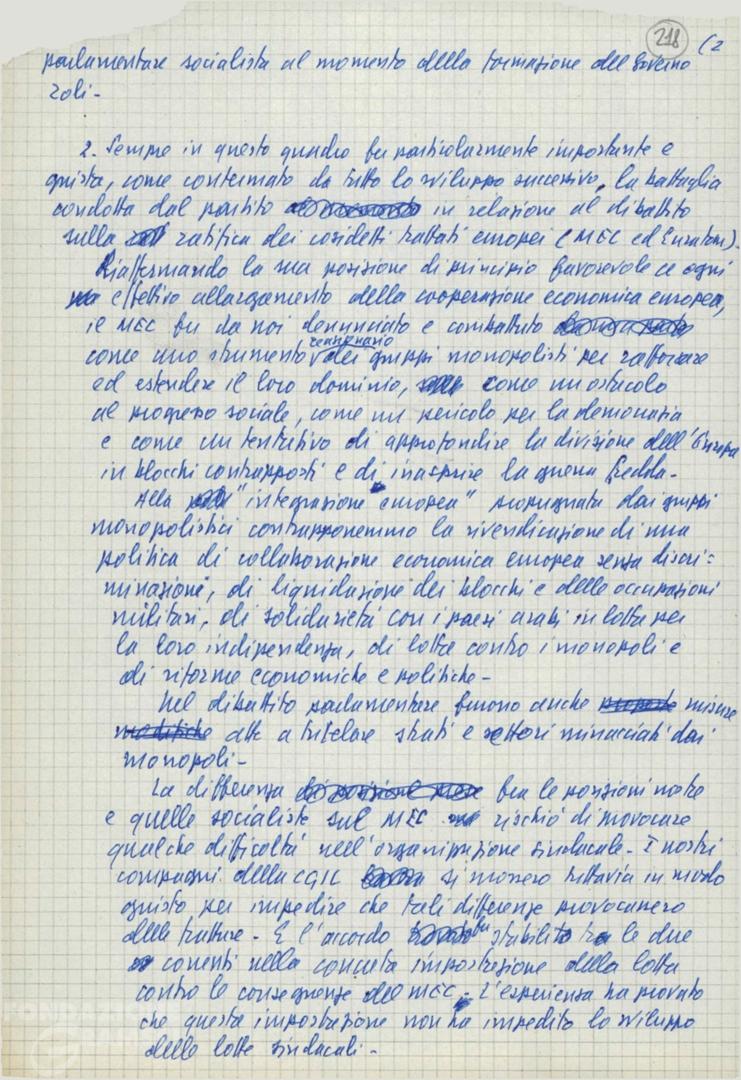 218 (2
parlamentare socialista al momento della formazione del Governo
Zoli-
2. Sempre in questo quadro fu particolarmente importante e
giusta, come confermato da tutto lo sviluppo successivo, la battaglia
condotta dal partito in relazione al dibattito
sulla ratifica dei cosidetti trattati europei (MEC ed Euratom).
Riaffermando la sua posizione di principio favorevole ad ogni
effettivo allargamento della cooperazione economica europea,
il MEC fu da noi denunciato e combattuto
come uno strumento reazionario dei gruppi monopolisti per rafforzare
ed estendere il loro dominio, come un ostacolo
al progresso sociale, come un pericolo per la democrazia
e come un tentativo di approfondire la divisione dell'Europa
in blocchi contrapposti e di inasprire la guerra fredda-
Alla "integrazione europea" propugnata dai gruppi
monopolistici contrapponemmo la rivendicazione di una
politica di collaborazione economica europea senza discri=
minazioni, di liquidazione dei blocchi e delle occupazioni
militari, di solidarietà con i paesi arabi in lotta per
la loro indipendenza, di lotta contro i monopoli e
di riforme economiche e politiche-
Nel dibattito parlamentare furono anche proposte misure
atte a tutelare strati e settori minacciati dai
monopoli-
La differenza fra le posizioni nostre
e quelle socialiste sul MEC rischiò di provocare
qualche difficoltà nell'organizzazione sindacale- I nostri
compagni della CGIL si mossero tuttavia in modo
giusto per impedire che tali differenze provocassero
delle fratture- E l'accordo fu stabilito tra le due
correnti nella concreta impostazione della lotta
contro le conseguenze del MEC- L'esperienza ha provato
che questa impostazione non ha impedito lo sviluppo
delle lotte sindacali-